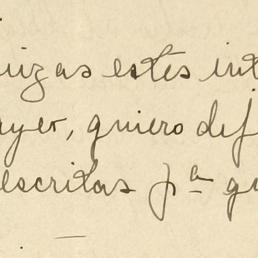 uizas estes int
ayer, quiero dej
escritas pª qu